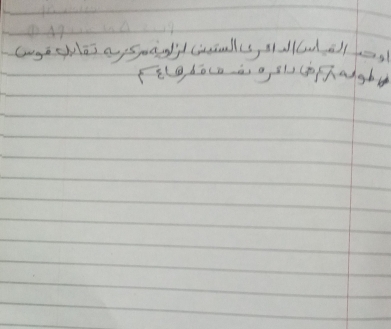 اوجد القياس الدائرى الستينى لزاوية مركزيه تقابل قوس
طوله فى دائره نصف قطرها ٤ سم